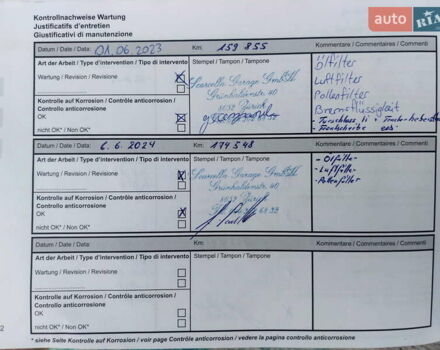 Kontrollnachweise Wartung
Justificatifs d'entretien
Giustificativi di manutenzione
auto RIA
Datum / Date / Data: 01.06.2023 Km: 159 855 Kommentare / Commentaires / Commenti
Art der Arbeit / Type d'intervention / Tipo di intervento Stempel / Tampon / Tampone Ölfilter
Wartung / Revision / Revisione Scarcella Garage GmbH Luftfilter
Grünhaldenstr. 40 Pollenfilter
Kontrolle auf Korrosion / Contrôle anticorrosion / 8052 Zürich Bremsflüssigkeit
Controllo anticorrosione
OK
nicht OK* / Not OK* Frontscheibe
Datum / Date / Data: 6.6.2024 Km: 174 548 Kommentare / Commentaires / Commenti
Art der Arbeit / Type d'intervention / Tipo di intervento Stempel / Tampon / Tampone - Ölfilter
Wartung / Revision / Revisione Scarcella Garage GmbH - Luftfilter
Grünhaldenstr. 40 - Pollenfilter
Kontrolle auf Korrosion / Contrôle anticorrosion /
Controllo anticorrosione
OK
nicht OK* / Non OK*
Datum / Date / Data: Km: Kommentare / Commentaires / Commenti
Art der Arbeit / Type d'intervention / Tipo di intervento Stempel / Tampon / Tampone
Wartung / Revision / Revisione
Kontrolle auf Korrosion / Contrôle anticorrosion /
Controllo anticorrosione
OK
nicht OK* / Non OK*
* siehe Seite Kontrolle auf Korrosion / voir page Contrôle anticorrosion / vedere la pagina controllo anticorrosione
2